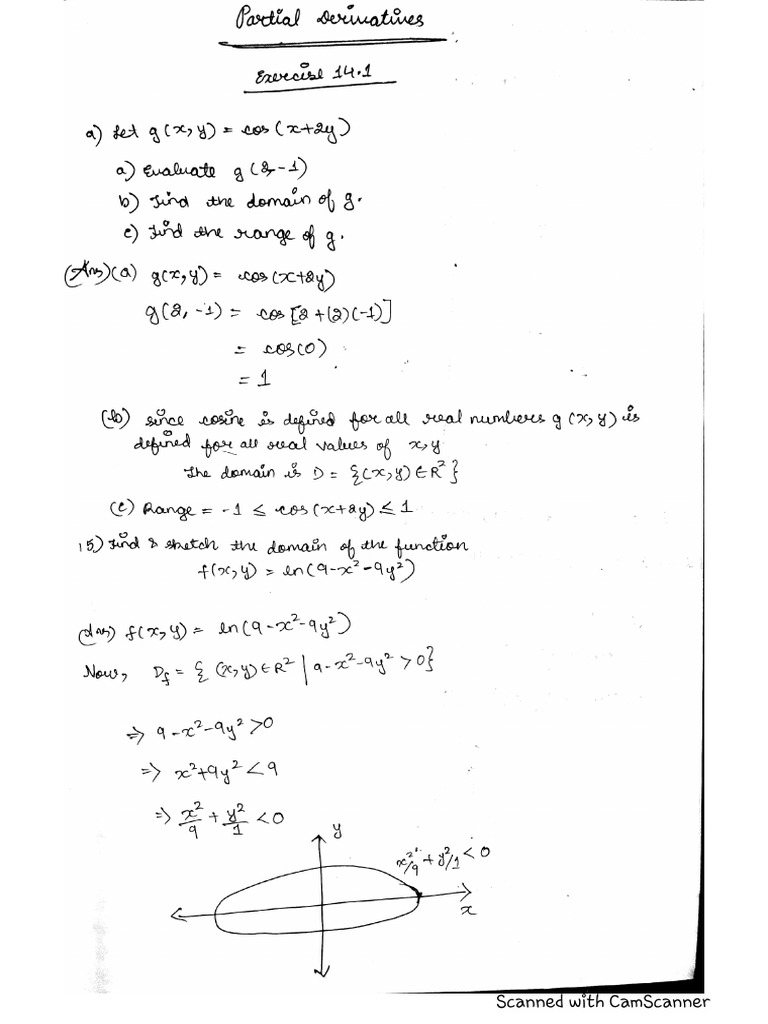 Partial Derivatives
Exercise 14.1
9) Let g(x,y) = cos(x+2y)
a) Evaluate g(2,-1)
b) Find the domain of g.
c) Find the range of g.
(Ans)(a) g(x,y) = cos(x+2y)
g(2,-1) = cos[2+(2)(-1)]
= cos(0)
= 1
(b) Since cosine is defined for all real numbers g(x,y) is
defined for all real values of x,y
The domain is D = {(x,y) ∈ R²}
(c) Range = -1 ≤ cos(x+2y) ≤ 1
15) Find & sketch the domain of the function
f(x,y) = ln(9-x²-9y²)
(Ans) f(x,y) = ln(9-x²-9y²)
Now, D_f = {(x,y) ∈ R² | 9-x²-9y² > 0}
⇒ 9-x²-9y² > 0
⇒ x²+9y² < 9
⇒ x²/9 + y²/1 < 0
y
x²/9 + y²/1 < 0
x
Scanned with CamScanner